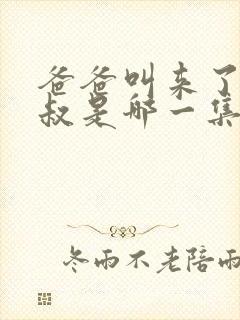 爸爸叫来了
叔是哪一集
冬雨不老陪雨